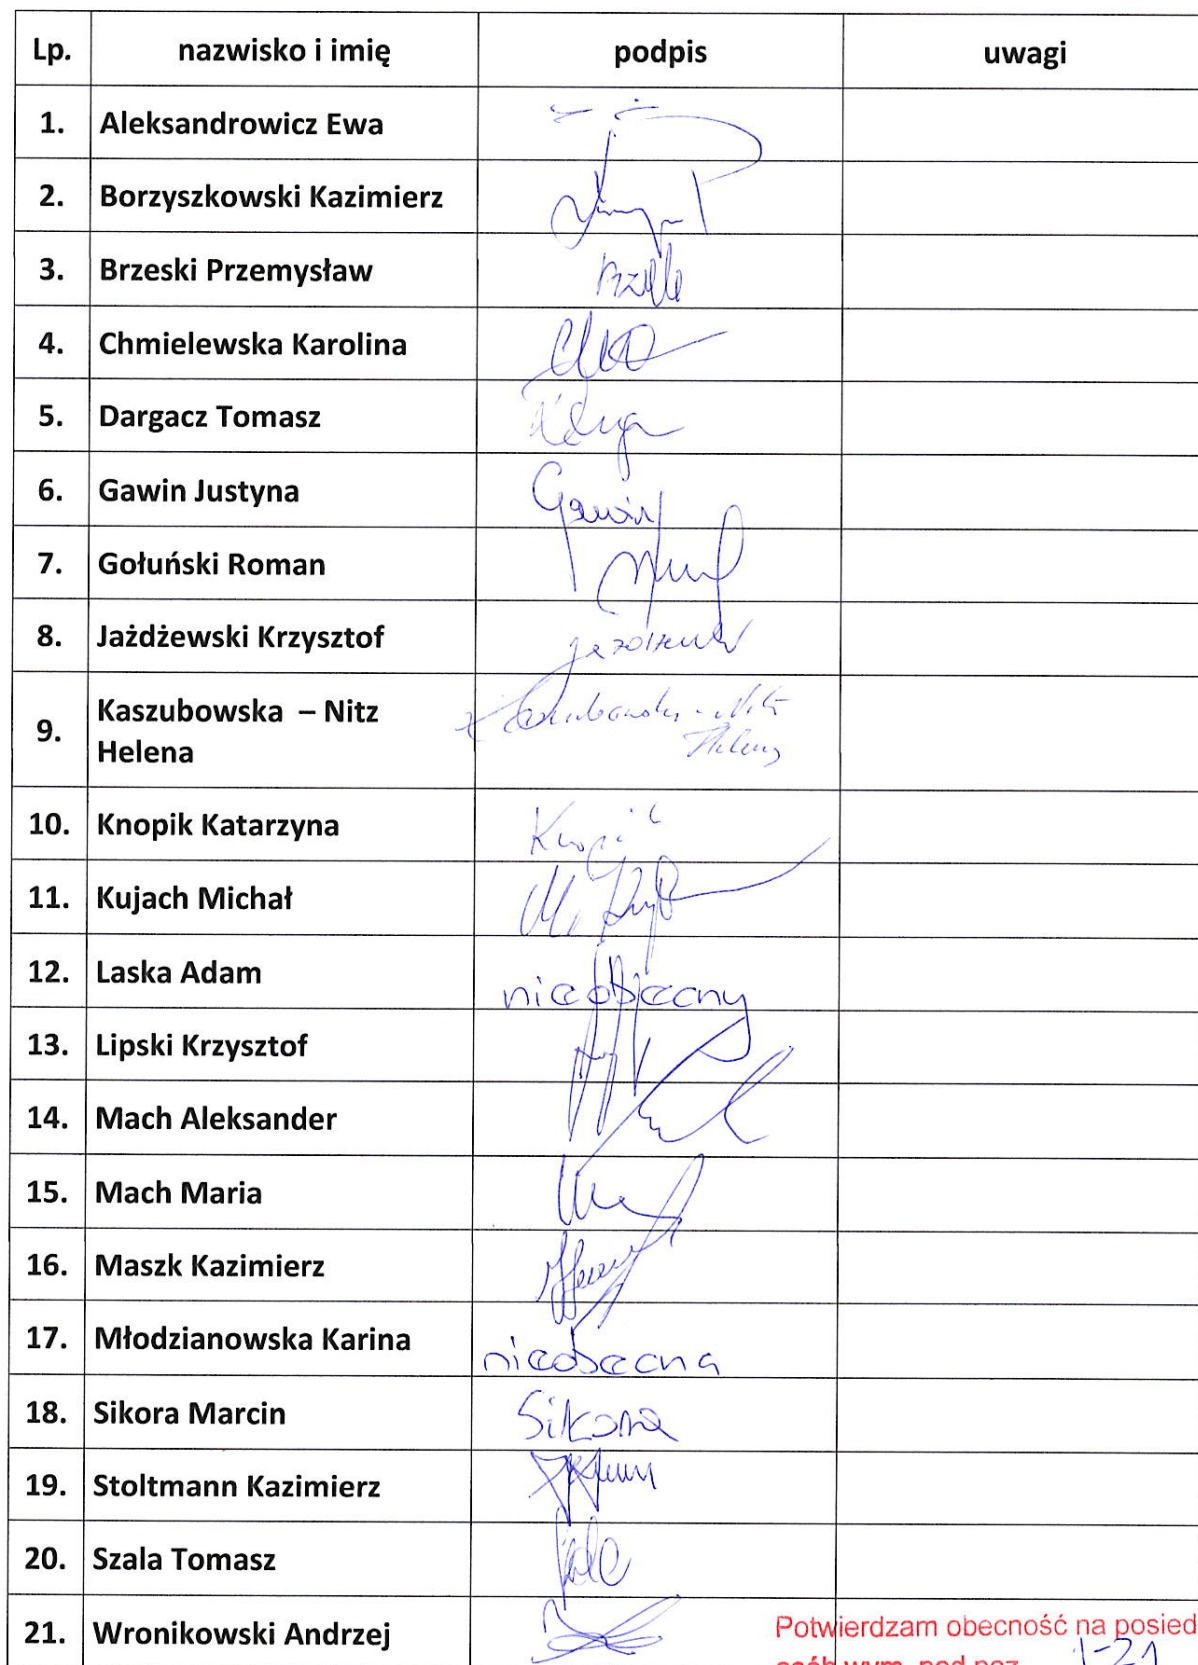 Lp. nazwisko i imię podpis uwagi
1. Aleksandrowicz Ewa
2. Borzyszkowski Kazimierz
3. Brzeski Przemysław
4. Chmielewska Karolina
5. Dargacz Tomasz
6. Gawin Justyna Gawin
7. Gołuński Roman
8. Jażdżewski Krzysztof
9. Kaszubowska – Nitz
Helena
10. Knopik Katarzyna Knopik
11. Kujach Michał
12. Laska Adam nieobecny
13. Lipski Krzysztof
14. Mach Aleksander
15. Mach Maria
16. Maszk Kazimierz
17. Młodzianowska Karina nieobecna
18. Sikora Marcin Sikora
19. Stoltmann Kazimierz
20. Szala Tomasz
21. Wronikowski Andrzej
Potwierdzam obecność na posied
osób wym. pod poz. 1-21